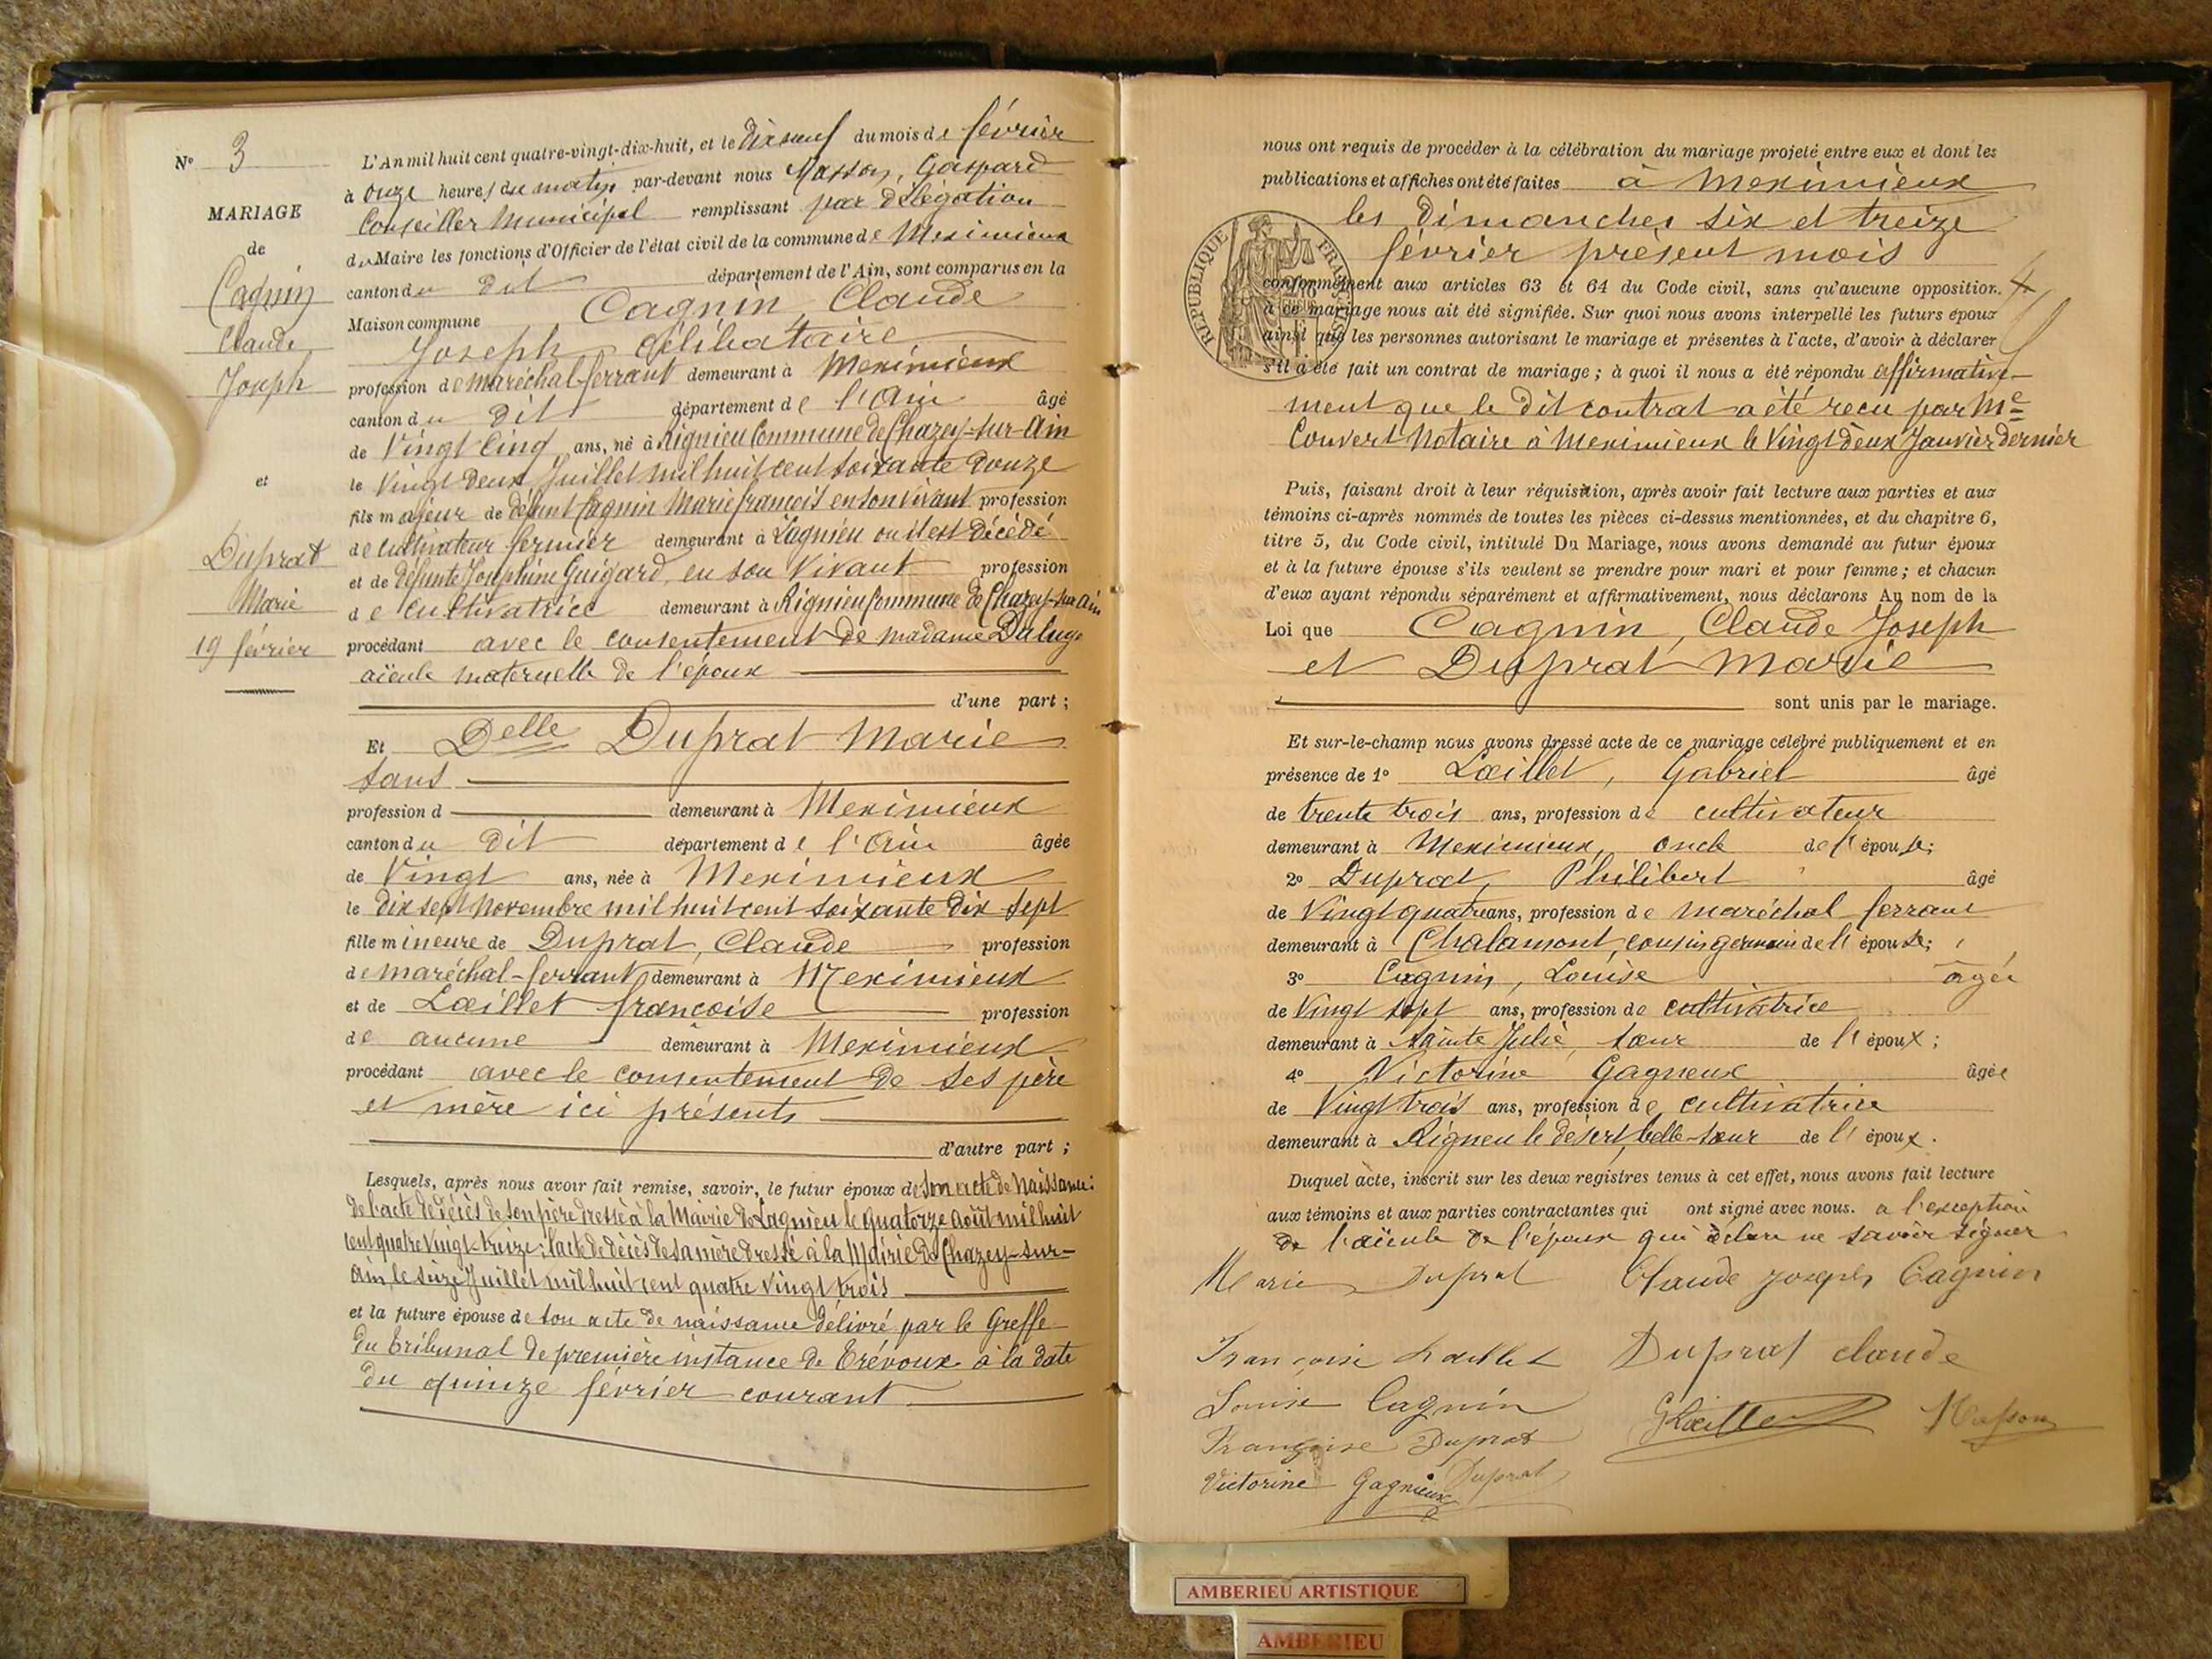 N° 3
MARIAGE
de
Cagnin
Claude
Joseph
et
Duprat
Marie
19 février
L'An mil huit cent quatre-vingt-dix-huit, et le Dix neuf du mois de février
à onze heures du matin par-devant nous Masson, Gaspard
Conseiller Municipal remplissant par délégation
du Maire les fonctions d'Officier de l'état civil de la commune de Meximieux
canton du dit département de l'Ain, sont comparus en la
Maison commune Cagnin Claude
Joseph célibataire
profession de maréchal-ferrant demeurant à Meximieux
canton du dit département de l'Ain âgé
de Vingt cinq ans, né à Rignieu Commune de Chazey-sur-Ain
le Vingt deux Juillet mil huit cent soixante douze
fils majeur de défunt Cagnin Marie françois en son vivant profession
de cultivateur fermier demeurant à Lagnieu ou il est décédé
et de défunte Joséphine Guigard, en son Vivant profession
de cultivatrice demeurant à Rignieu Commune de Chazey-sur-Ain
procédant avec le consentement de madame
aïeule maternelle de l'époux
d'une part ;
Et Delle Duprat Marie
sans
profession d demeurant à Meximieux
canton du dit département de l'Ain âgée
de Vingt ans, née à Meximieux
le dix sept Novembre mil huit cent soixante dix sept
fille mineure de Duprat, Claude profession
de maréchal-ferrant demeurant à Meximieux
et de Lœillet françoise profession
de aucune demeurant à Meximieux
procédant avec le consentement de ses père
et mère ici présents
d'autre part ;
Lesquels, après nous avoir fait remise, savoir, le futur époux de son acte de Naissance :
de l'acte de décès de son père dressé à la Mairie de Lagnieu le quatorze Août mil huit
cent quatre vingt-treize ; l'acte de décès de sa mère dressé à la Mairie de Chazey-sur-
Ain, le seize Juillet mil huit cent quatre vingt trois
et la future épouse de son acte de naissance délivré par le Greffe
du Tribunal de première instance de Trévoux à la date
du quinze février courant
nous ont requis de procéder à la célébration du mariage projeté entre eux et dont les
publications et affiches ont été faites à Meximieux
les dimanches six et treize
février présent mois
REPUBLIQUE FRANÇAISE
conformément aux articles 63 et 64 du Code civil, sans qu'aucune opposition
à ce mariage nous ait été signifiée. Sur quoi nous avons interpellé les futurs époux
ainsi que les personnes autorisant le mariage et présentes à l'acte, d'avoir à déclarer
s'il a été fait un contrat de mariage ; à quoi il nous a été répondu affirmative-
ment que le dit contrat a été reçu par Me
Convert Notaire à Meximieux le Vingt deux Janvier dernier
Puis, faisant droit à leur réquisition, après avoir fait lecture aux parties et aux
témoins ci-après nommés de toutes les pièces ci-dessus mentionnées, et du chapitre 6,
titre 5, du Code civil, intitulé Du Mariage, nous avons demandé au futur époux
et à la future épouse s'ils veulent se prendre pour mari et pour femme ; et chacun
d'eux ayant répondu séparément et affirmativement, nous déclarons Au nom de la
Loi que Cagnin, Claude Joseph
et Duprat Marie
sont unis par le mariage.
Et sur-le-champ nous avons dressé acte de ce mariage célébré publiquement et en
présence de 1° Lœillet, Gabriel âgé
de trente trois ans, profession de cultivateur
demeurant à Meximieux, oncle de l'épouse ;
2° Duprat, Philibert âgé
de Vingt quatre ans, profession de maréchal ferrant
demeurant à Chalamont, cousin germain de l'épouse ;
3° Cagnin, Louise âgée
de Vingt sept ans, profession de cultivatrice
demeurant à Sainte Julie, sœur de l'époux ;
4° Victorine Gagneux âgée
de Vingt trois ans, profession de cultivatrice
demeurant à Rigneu le désert, belle-sœur de l'époux.
Duquel acte, inscrit sur les deux registres tenus à cet effet, nous avons fait lecture
aux témoins et aux parties contractantes qui ont signé avec nous. a l'exception
de l'aïeule de l'époux qui déclare ne savoir signer
Marie Duprat Claude Joseph Cagnin
Françoise Lœillet Duprat claude
Louise Cagnin GLœillet Masson
Françoise Duprat
Victorine Gagnieux Duprat
AMBERIEU ARTISTIQUE
AMBERIEU